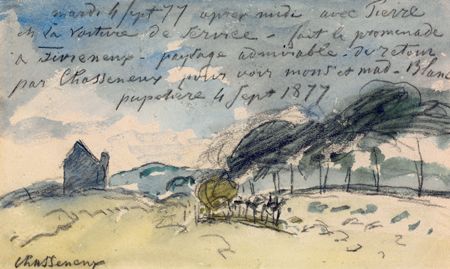 mardi 4 Sept 77 après midi avec Pierre
en la voiture de Service - fait la promenade
a - paysage admirable. de retour
par Chasseneux pour voir mons et mad. Blanc
pupetière 4 Sept 1877
Chasseneux